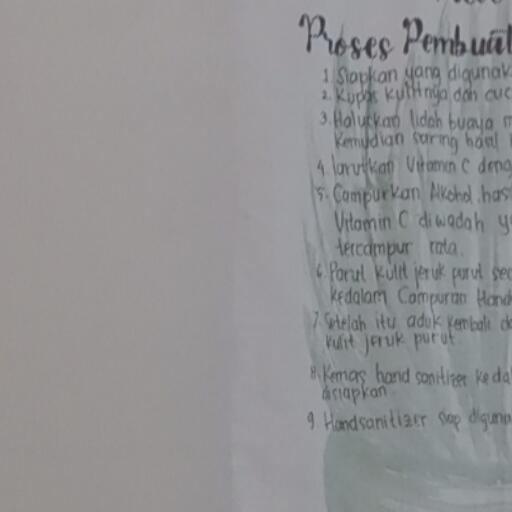 Proses Pembuat
1. Siapkan yang digunak
2. Kupas kulitnya dan cuc
3. Haluskan lidah buaya m
kemudian saring hasil
4. larutkan Vitamin C deng
5. Campurkan Alkohol, has
Vitamin C diwadah ya
tercampur rata.
6. Parut kulit jeruk purut sec
kedalam Campuran Hand
7. Setelah itu aduk kembali da
kulit jeruk purut.
8. Kemas hand sanitizer kedal
disiapkan.
9. Handsanitizer siap diguna